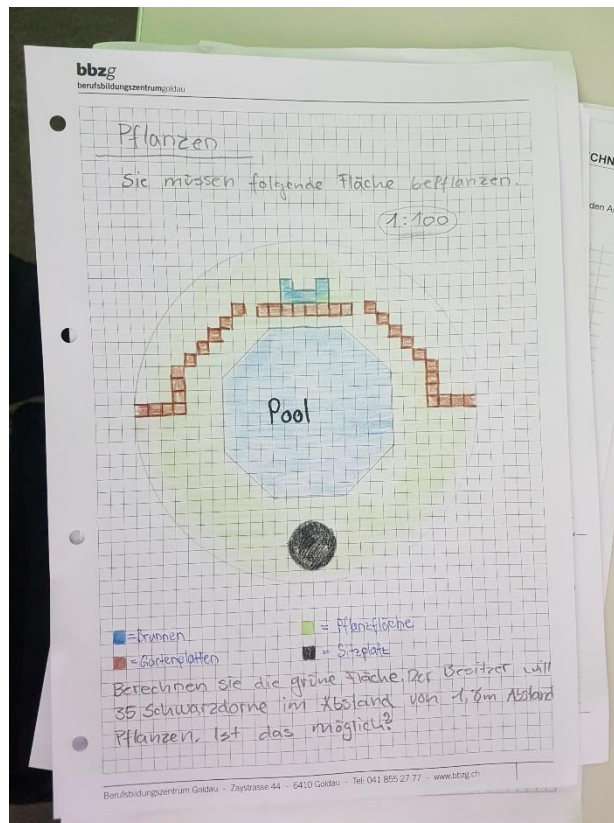 bbzg
berufsbildungszentrumgoldau
Pflanzen
Sie müssen folgende Fläche bepflanzen.
1:100
Pool
=Brunnen
= Pflanzfläche
= Gartenplatten
= Sitzplatz
Berechnen sie die grüne Fläche. Der Besitzer will
35 Schwarzdorne im Abstand von 1,8m Abstand
Pflanzen. Ist das möglich?
Berufsbildungszentrum Goldau - Zaystrasse 44 - 6410 Goldau - Tel: 041 855 27 77 - www.bbzg.ch
CHN
den A